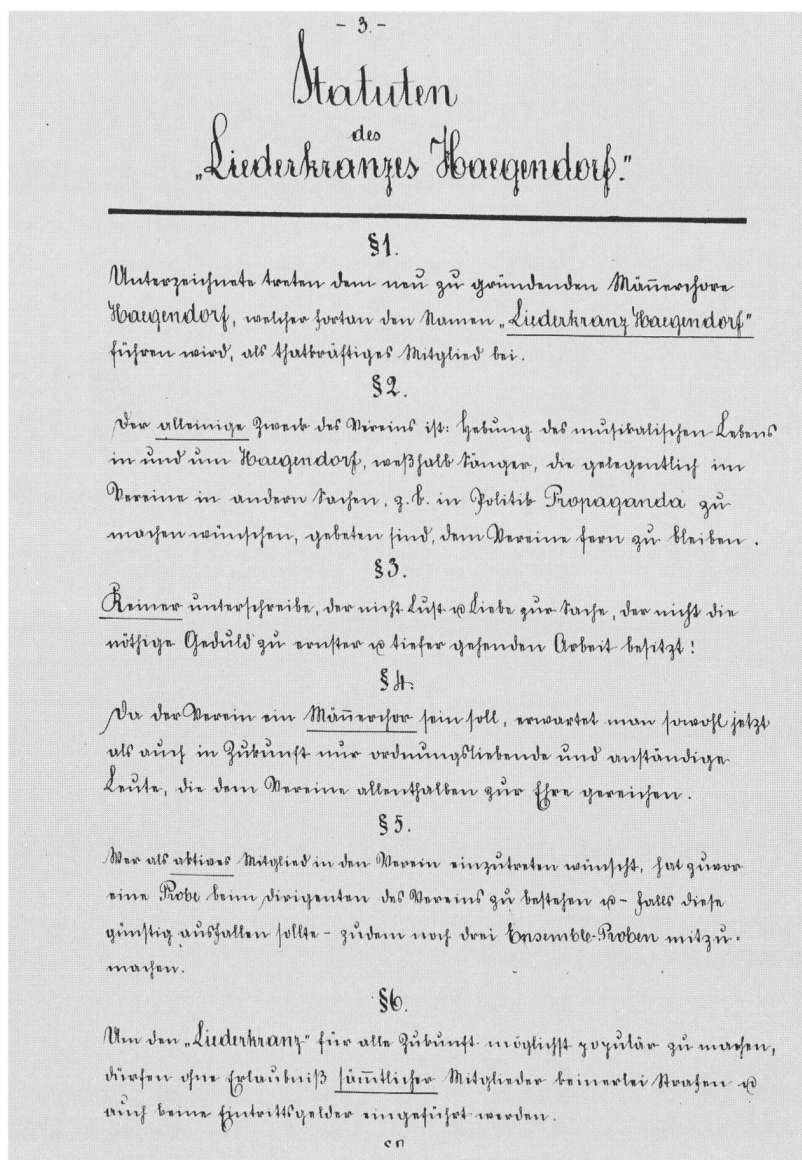 - 3. -
Statuten
des
„Liederkranzes Haegendorf."
§1.
Unterzeichnete treten dem neu zu gründenden Mañerchore
Haegendorf, welcher fortan den Namen „Liederkranz Haegendorf"
führen wird, als thatkräftiges Mitglied bei.
§2.
Der alleinige Zweck des Vereins ist: Hebung des musikalischen Lebens
in und um Haegendorf, weßhalb Sänger, die gelegentlich im
Vereine in andern Sachen, z. b. in Politik Propaganda zu
machen wünschen, gebeten sind, dem Vereine fern zu bleiben.
§3.
Keiner unterschreibe, der nicht Lust u Liebe zur Sache, der nicht die
nöthige Geduld zu ernster u tiefer gehenden Arbeit besitzt!
§4.
Da der Verein ein Män̄erchor sein soll, erwartet man sowohl jetzt
als auch in Zukunft nur ordnungsliebende und anständige
Leute, die dem Vereine allenthalben zur Ehre gereichen.
§5.
Wer als aktives Mitglied in den Verein einzutreten wünscht, hat zuvor
eine Probe beim Dirigenten des Vereins zu bestehen u – falls diese
günstig ausfallen sollte – zudem noch drei Ensemble-Proben mitzu-
machen.
§6.
Um den „Liederkranz" für alle Zukunft möglichst populär zu machen,
dürfen ohne Erlaubniß säm̄tlicher Mitglieder keinerlei Strafen u
auch keine Eintrittsgelder eingeführt werden.